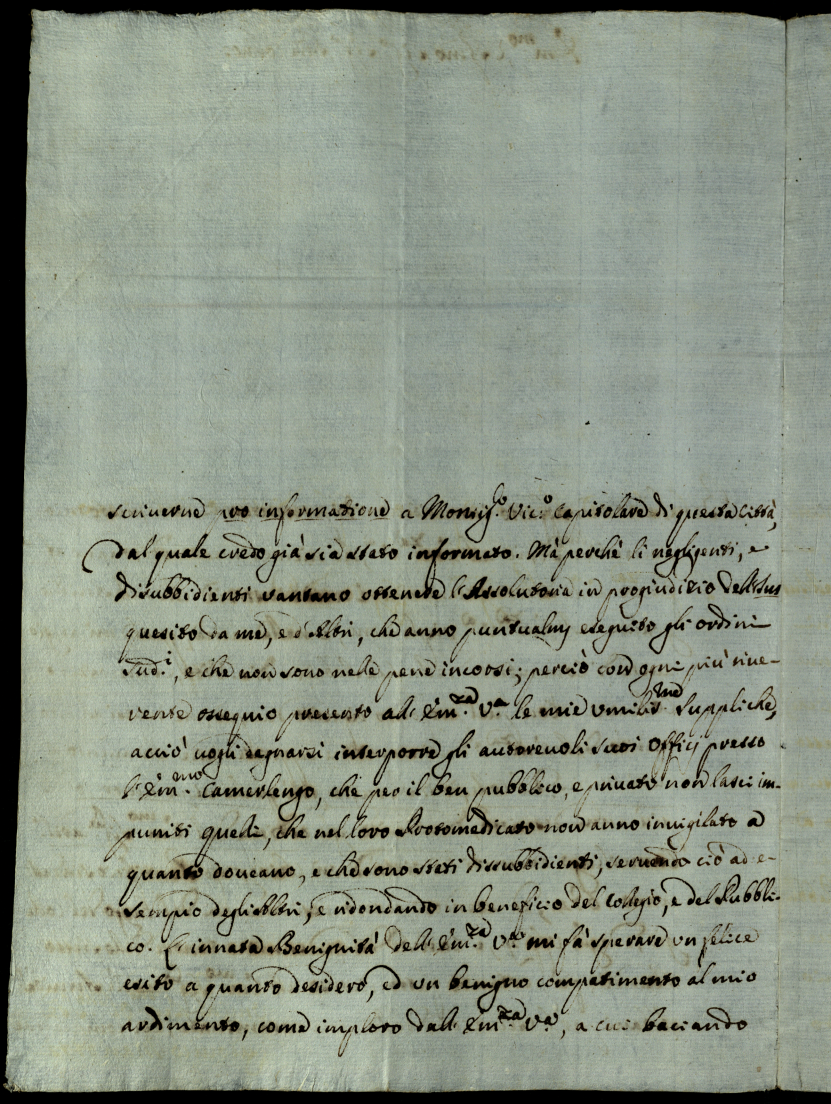 scriverne pro informatione a Monsig.r Vic.o Capitolare di questa Città,
dal quale credo già sia stato informato. Mà perchè li negligenti, e
disubbidienti vantano ottenere l'Assolutoria in progiuditio dell'Jus
quesito da me, e d'Altri, che anno puntualm eseguito gli ordini
sud.i, e che non sono nelle pene incorsi; perciò con ogni più rive-
rente ossequio presento all'Em.za V.a le mie umilis.me Suppliche,
acciò vogli degnarsi interporre gli autorevoli suoi Officij presso
l'Em.mo Camerlengo, che per il ben pubblico, e privato non lasci im-
puniti quelli, che nel loro Protomedicato non anno invigilato a
quanto doveano, e che sono stati dissubbidienti, servendo ciò ad e-
sempio degli Altri, e ridondando in beneficio del Colegio, e del Pubbli-
co. L'innata Benignità dell'Em.za V.a mi fà sperare un felice
esito a quanto desidero, ed un benigno compatimento al mio
ardimento, come imploro dall'Em.za V.a, a cui baciando